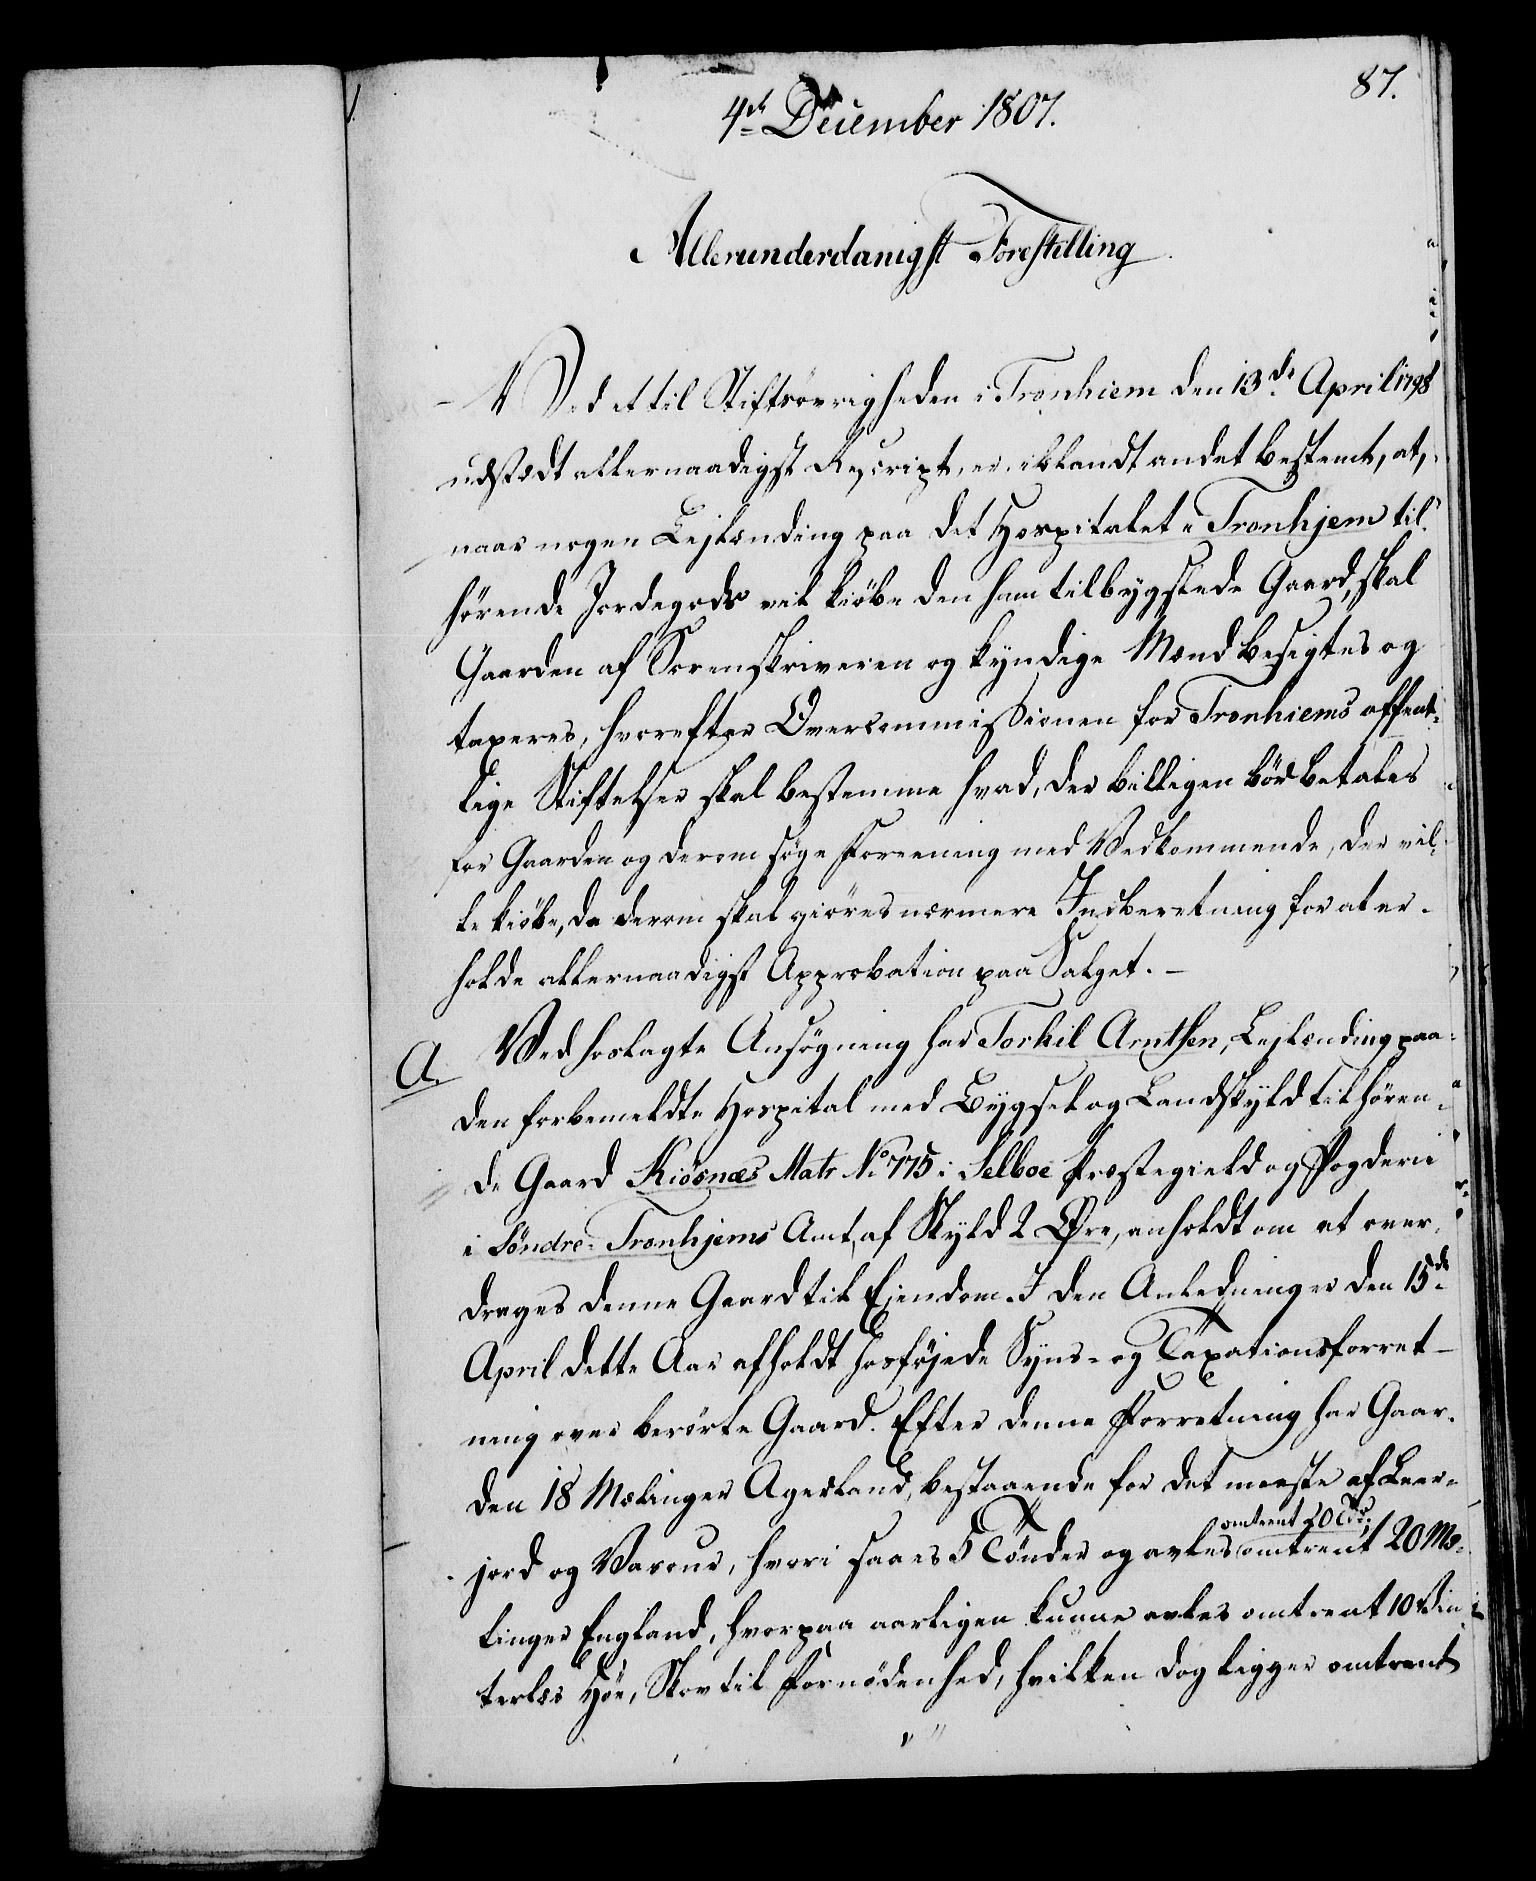 87.
4de December 1807.
Allerunderdanigst Forestilling
Ved et til Stiftsövrigheden i Tronhiem den 13de April 1798
udstædt allernaadigst Rescript, er iblandt andet bestemt, at,
naar nogen Lejlænding paa det Hospitalet i Tronhjem til-
hörende Jordegods vil kiöbe den ham tilbygslede Gaard, skal
Gaarden af Sorenskriveren og kyndige Mænd besigtes og
taxeres, hvorefter Overcommissionen for Tronhiems offent-
lige Stiftelser skal bestemme hvad, der billigen bör betales
for Gaarden og derom söge Foreening med Vedkommende, der vil-
le kiöbe, da derom skal giöres nærmere Indberetning for at er-
holde allernaadigst Approbation paa Salget. -
A. Ved hoslagte Ansögning har Torkil Arntsen, Lejlænding paa
den forbemeldte Hospital med Bygsel og Landskyld tilhören-
de Gaard Kiösnæs Matr No 775 i Selboe Præstegield og Fogderie
i Söndre-Tronhjems Amt, af Skyld 2 Øre, anholdt om at over-
drages denne Gaard til Ejendom. I den Anledning er den 15de
April dette Aar afholdt hosföjede Syns- og Taxationsforret-
ning over berörte Gaard. Efter denne Forretning har Gaar-
den 18 Mælinger Agerland, bestaaende for det meeste af Leer-
jord og Maur, hvori saaes 5 Tönder og avles omtrent 20 Tdr; omtrent 20 Mæ-
linger England, hvorpaa aarligen kunne avles omtrent 10 Vin-
terlæs Höe, Skov til Fornödenhed, hvilken dog ligger omtrent